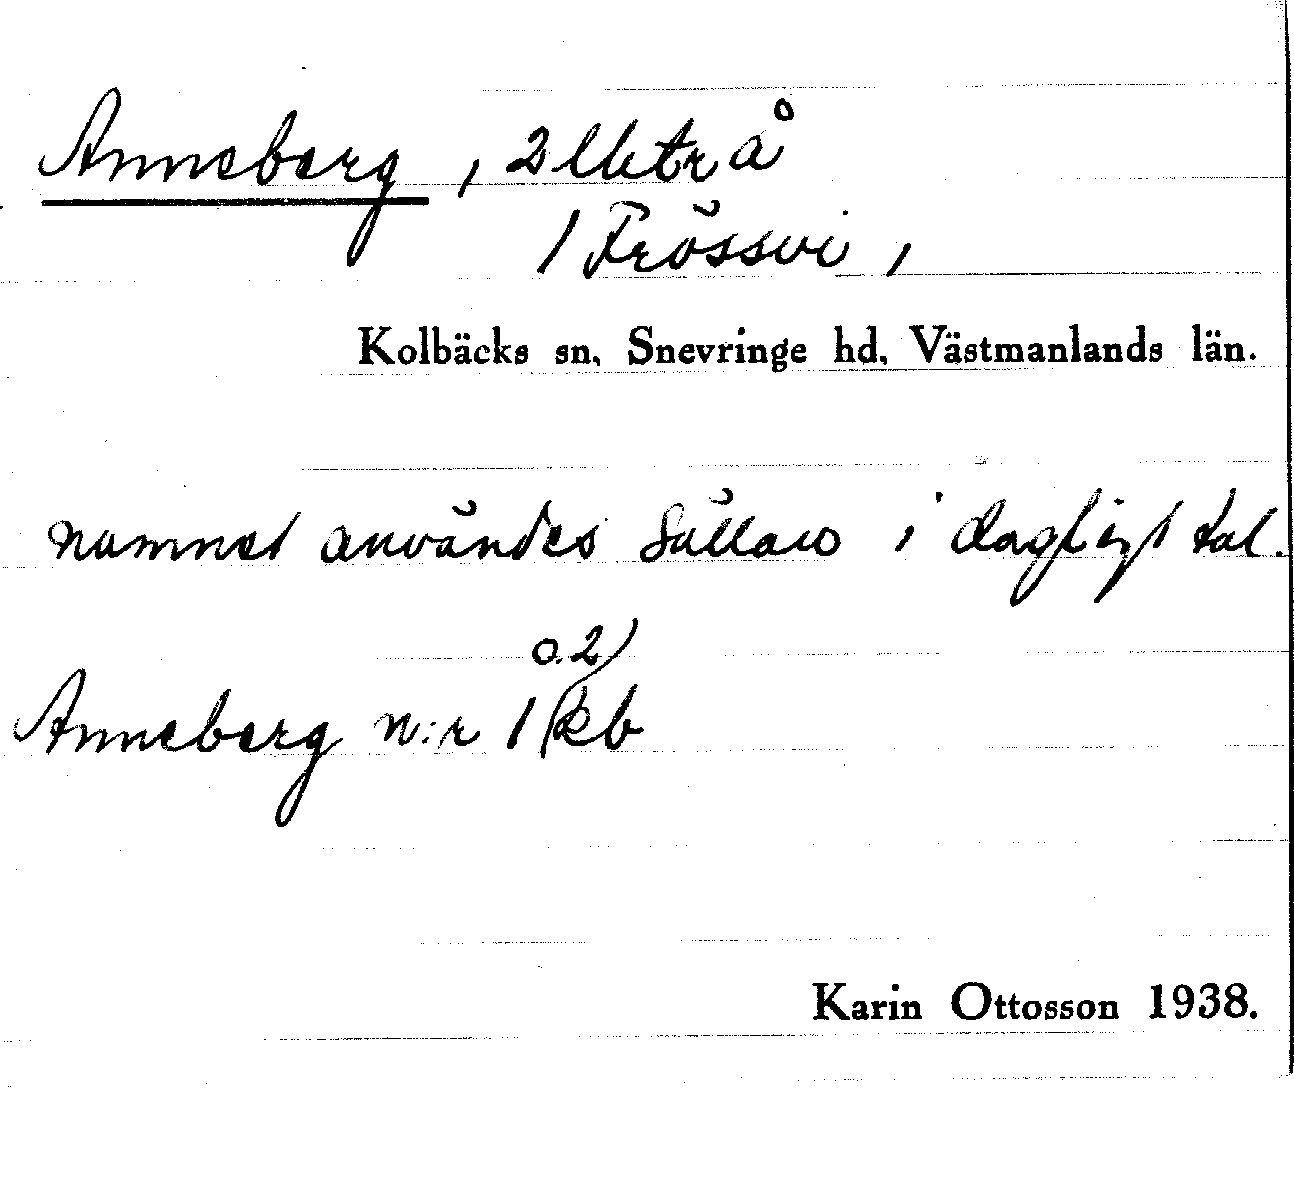 Anneberg, 2 lht på
1 Frössvi,
Kolbäcks sn, Snevringe hd, Västmanlands län.
namnet användes sällan i dagligt tal.
o. 2)
Anneberg n:r 1 (kb
Karin Ottosson 1938.